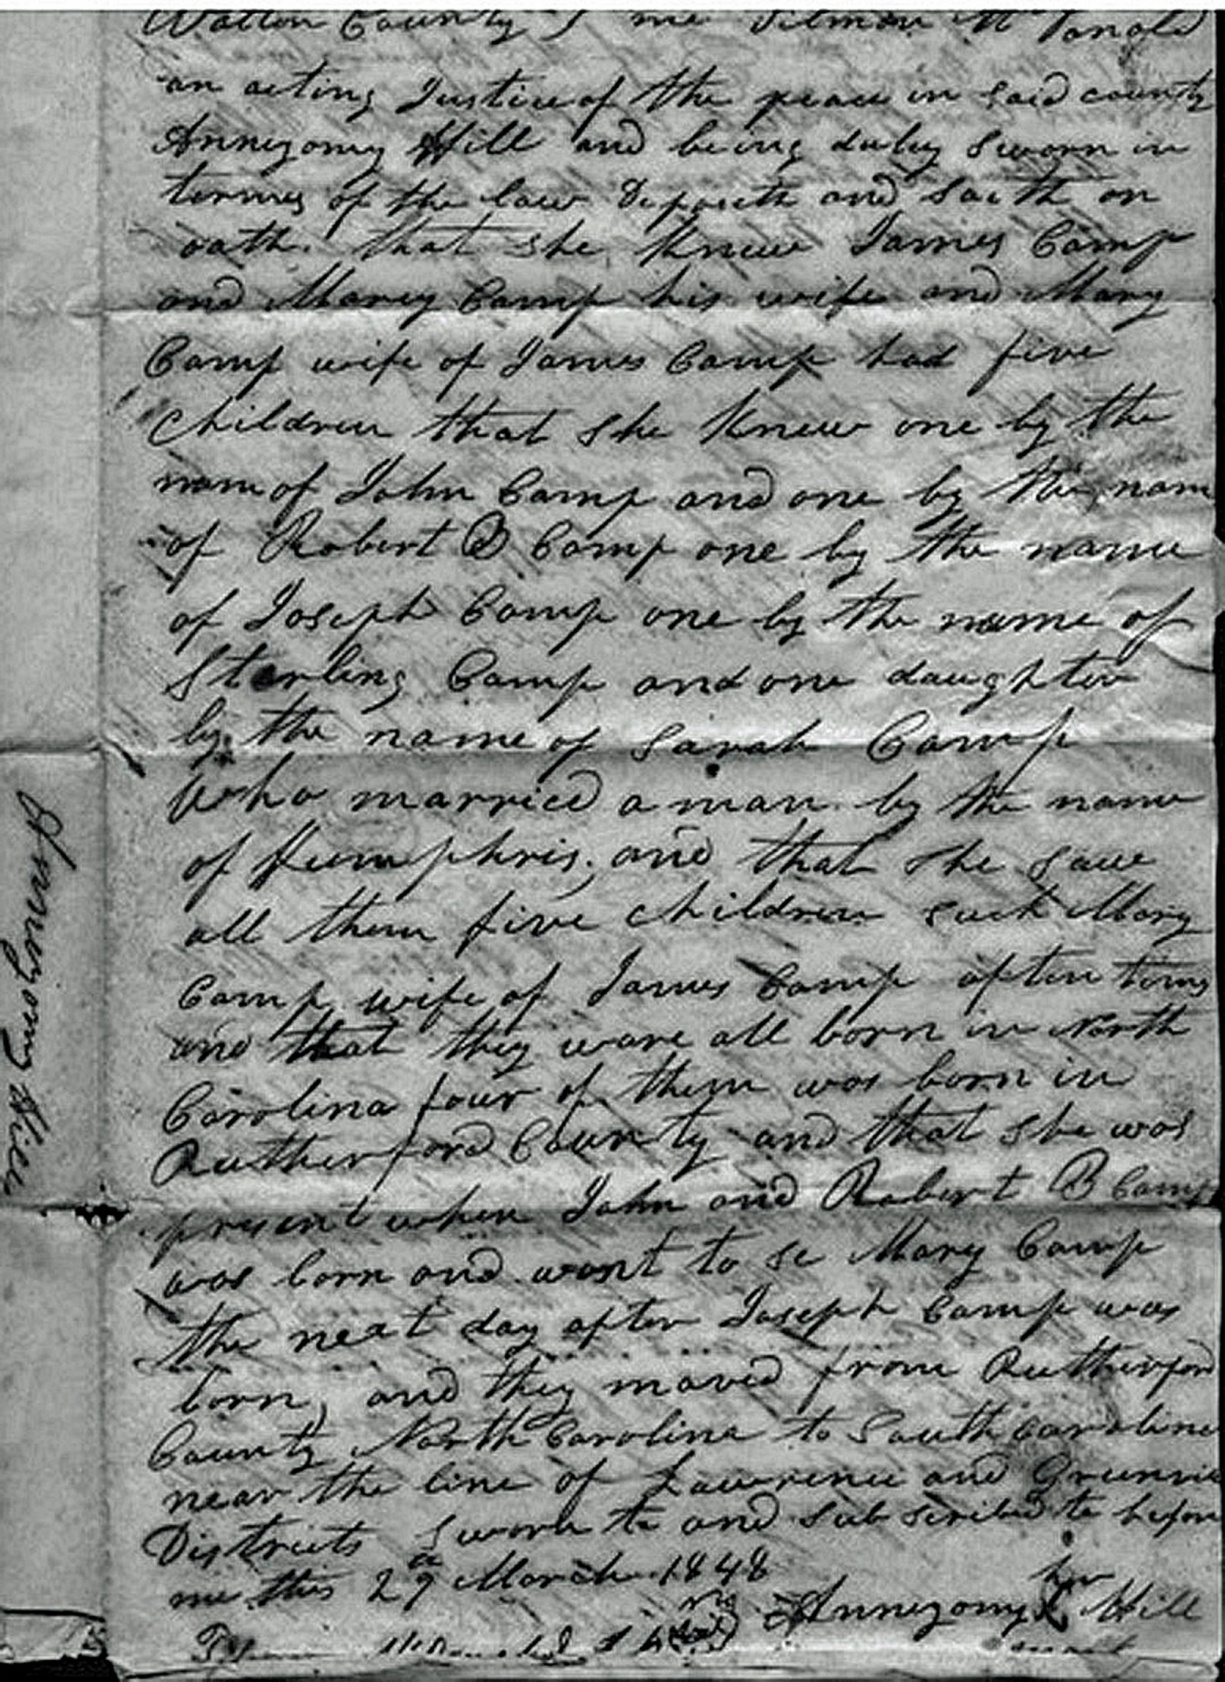 Walton County } me Tilmon McDonald
an acting Justice of the peace in said county
Annezomy Hill and being duley sworn in
terms of the law Deposeth and saith on
oath. that she knew James Camp
and Marey Camp his wife and Mary
Camp wife of James Camp had five
Children that she knew one by the
nam of John Camp and one by the nam
of Robert B Camp one by the name
of Joseph Camp one by the name of
Sterling Camp and one daughter
by the name of Sarah Camp
Who married a man by the name
of Humphris, and that she saw
all them five children suck Mary
Camp wife of James Camp often times
and that they ware all born in North
Carolina four of them was born in
Rutherford County and that she was
present when John and Robert B Camp
was born and went to se Mary Camp
the next day after Joseph Camp was
born, and they moved from Rutherford
County North Carolina to South Carolina
near the line of Lawrence and Greenvi
Districts sworn to and subscribed to before
me this 29 March 1848
her
Annezomy X Hill
mark
McDonald J P
Annezomy Hill